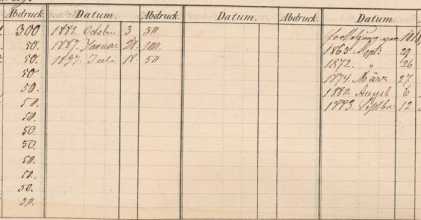 Abdruck. Datum. Abdruck. Datum. Abdruck. Datum.
300 1882. October 3 50 1860
50. 1887. Januar 28. 100. 1865. Spt. 29
50. 1897. Juli 18. 50 1872. " 26
50. 1874. März 27.
50. 1880. August 6
50. 1883. Septbr. 12
50.
50.
50.
50.
50.
50.
50.